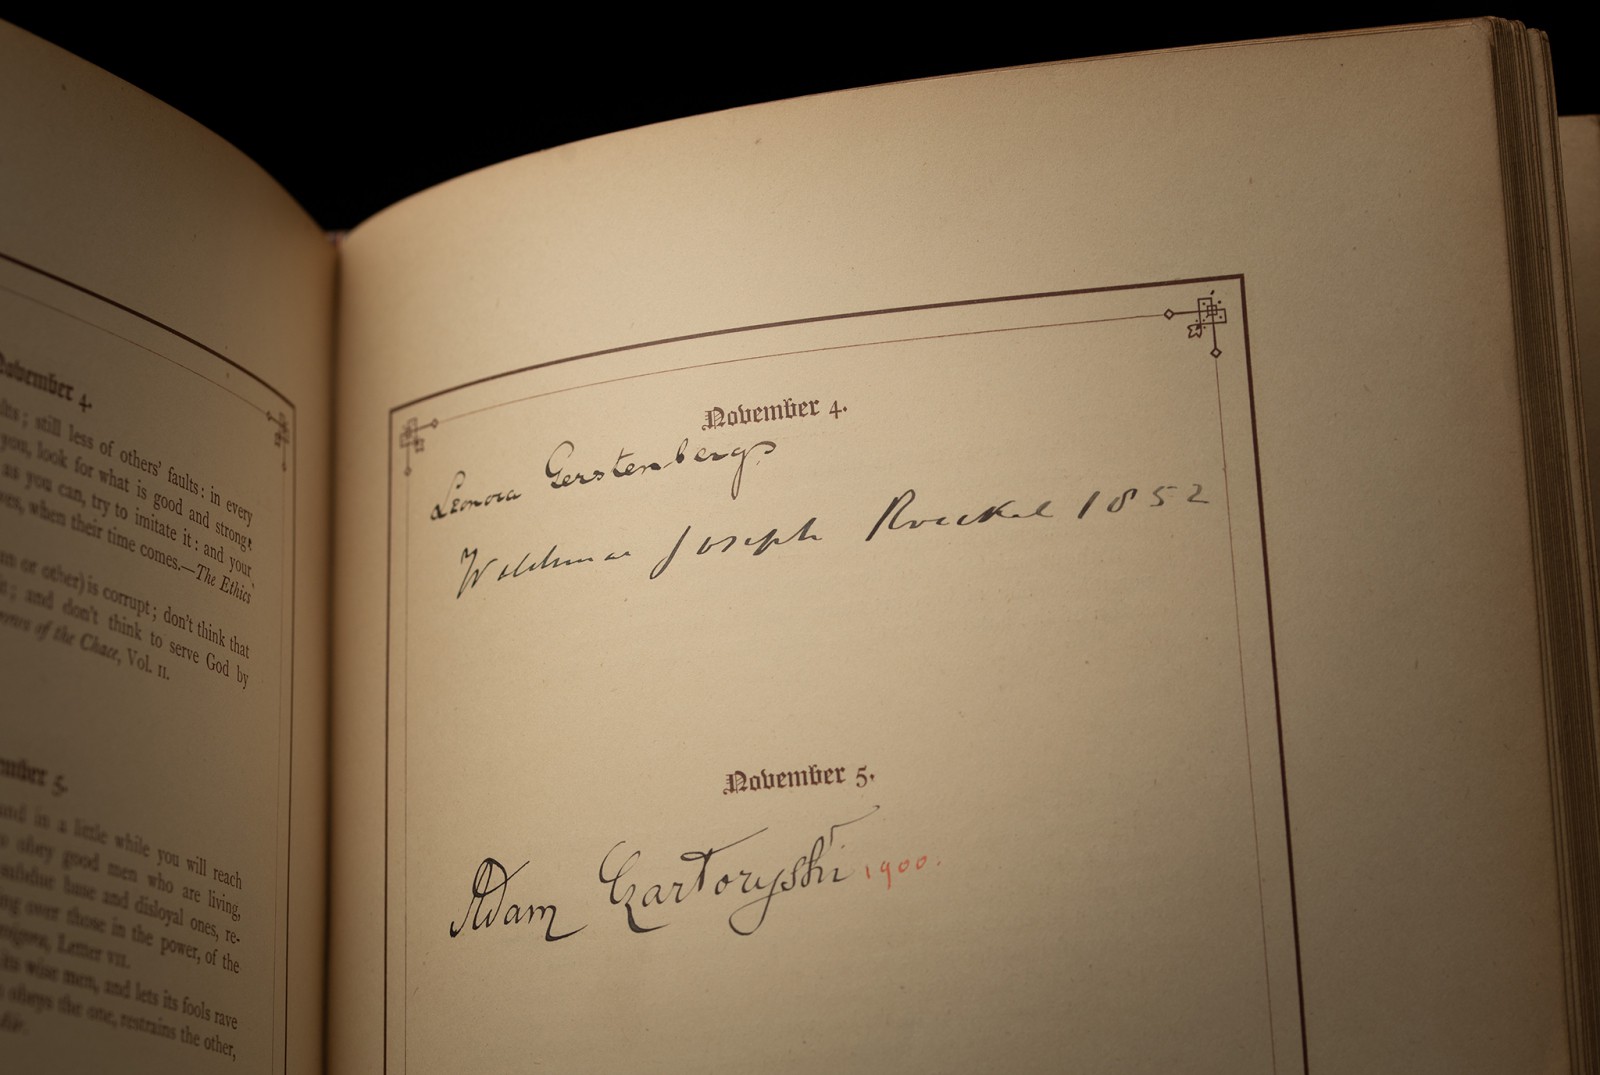 November 4.
lts; still less of others' faults: in every
you, look for what is good and strong;
as you can, try to imitate it: and your
ves, when their time comes.—The Ethics
um or other) is corrupt; don't think that
; and don't think to serve God by
of the Chace, Vol. II.
mber 5.
and in a little while you will reach
obey good men who are living,
base and disloyal ones, re-
ing over those in the power, of the
Letter VII.
its wise men, and lets its fools rave
obeys the one, restrains the other,
November 4.
Leonora Gerstenberg
Waldemar Joseph Roeckel 1852
November 5.
Adam Czartoryski 1900.